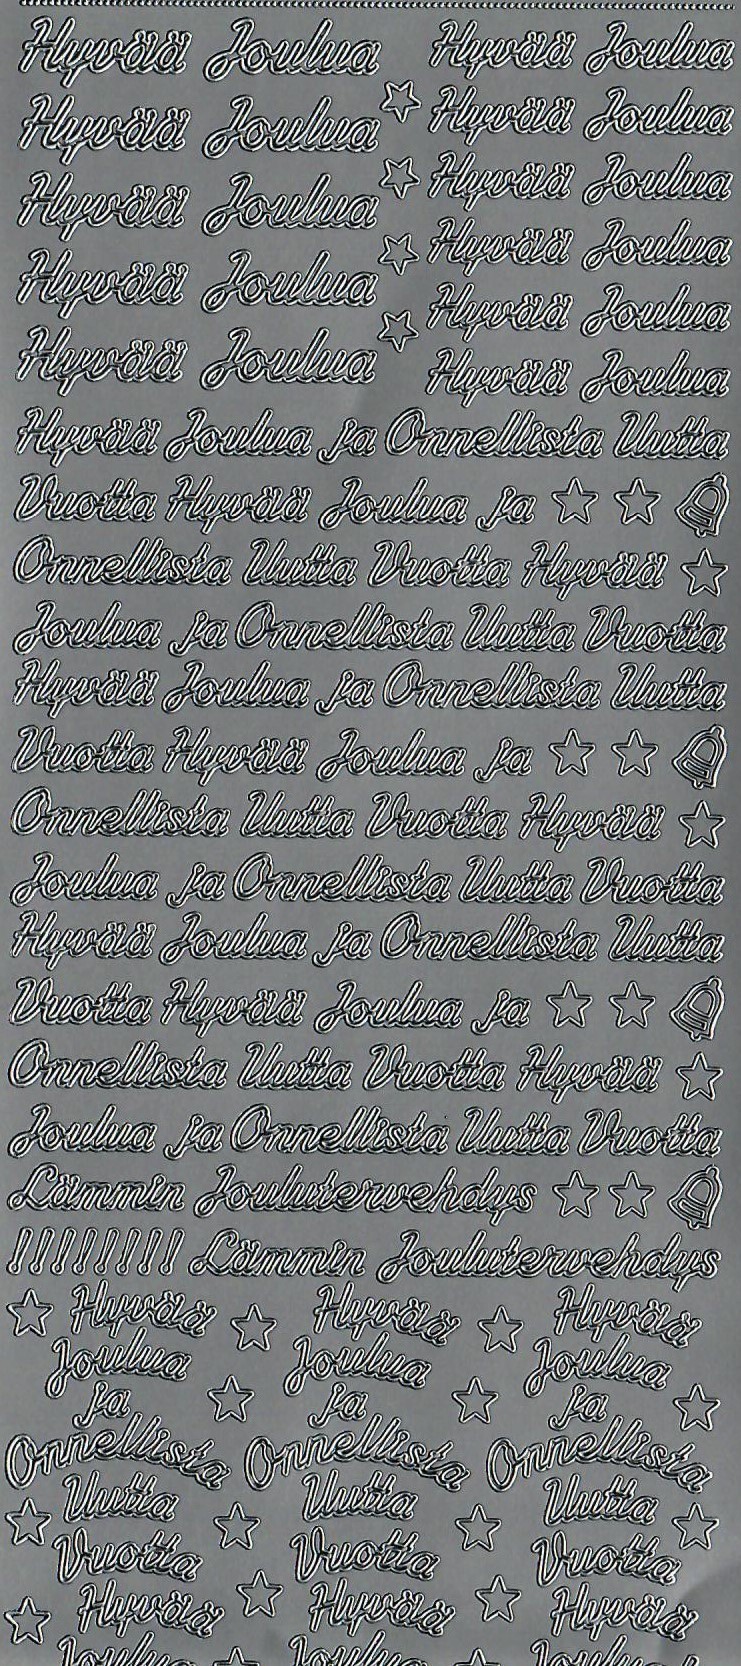 Hyvää Joulua Hyvää Joulua
Hyvää Joulua Hyvää Joulua
Hyvää Joulua Hyvää Joulua
Hyvää Joulua Hyvää Joulua
Hyvää Joulua Hyvää Joulua
Hyvää Joulua
Hyvää Joulua ja Onnellista Uutta
Vuotta Hyvää Joulua ja
Onnellista Uutta Vuotta Hyvää
Joulua ja Onnellista Uutta Vuotta
Hyvää Joulua ja Onnellista Uutta
Vuotta Hyvää Joulua ja
Onnellista Uutta Vuotta Hyvää
Joulua ja Onnellista Uutta Vuotta
Hyvää Joulua ja Onnellista Uutta
Vuotta Hyvää Joulua ja
Onnellista Uutta Vuotta Hyvää
Joulua ja Onnellista Uutta Vuotta
Lämmin Joulutervehdys
!!!!!!!! Lämmin Joulutervehdys
Hyvää Hyvää Hyvää
Joulua Joulua Joulua
ja ja ja
Onnellista Onnellista Onnellista
Uutta Uutta Uutta
Vuotta Vuotta Vuotta
Hyvää Hyvää Hyvää
Joulua Joulua Joulua